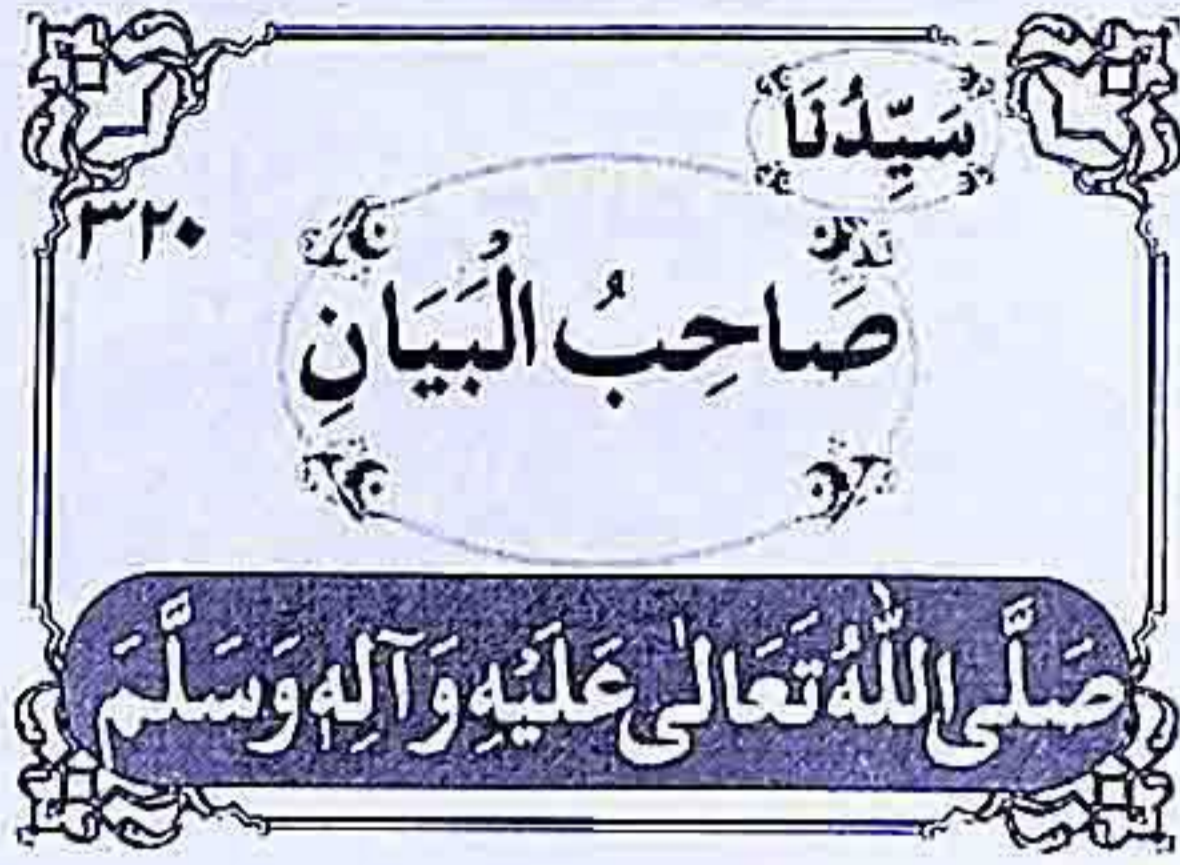 سَيِّدُنَا
٣٢٠
صَاحِبُ الْبَيَانِ
صَلَّى اللّٰهُ تَعَالٰى عَلَيْهِ وَآلِهٖ وَسَلَّمَ